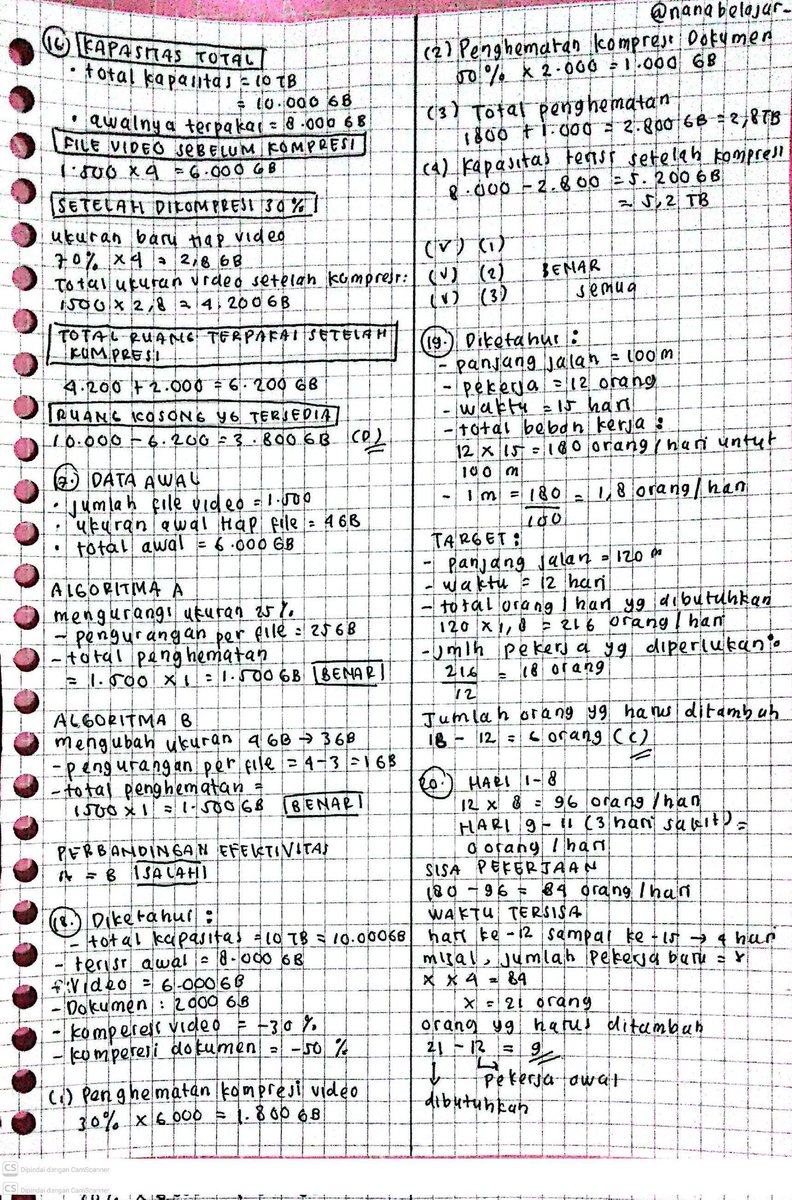 @nanabelajar_
(16.) KAPASITAS TOTAL
• total kapasitas = 10 TB
= 10.000 GB
• awalnya terpakai = 8.000 GB
FILE VIDEO SEBELUM KOMPRESI
1.500 x 4 = 6.000 GB
SETELAH DIKOMPRESI 30%
ukuran baru tiap video
70% x 4 = 2,8 GB
Total ukuran video setelah kompresi:
1500 x 2,8 = 4.200 GB
TOTAL RUANG TERPAKAI SETELAH
KOMPRESI
4.200 + 2.000 = 6.200 GB
RUANG KOSONG YG TERSEDIA
10.000 - 6.200 = 3.800 GB (D)
(7.) DATA AWAL
• jumlah file video = 1.500
• ukuran awal tiap file = 4GB
• total awal = 6.000 GB
ALGORITMA A
mengurangi ukuran 25%.
- pengurangan per file = 25GB
- total penghematan
= 1.500 x 1 = 1.500 GB BENAR
ALGORITMA B
mengubah ukuran 4GB → 3GB
- pengurangan per file = 4-3 = 1GB
- total penghematan =
1500 x 1 = 1.500 GB BENAR
PERBANDINGAN EFEKTIVITAS
A = B SALAH
(18.) Diketahui :
- total kapasitas = 10 TB = 10.000GB
- terisi awal = 8.000 GB
f.Video = 6.000 GB
- Dokumen : 2000 GB
- komperesi video = -30 %
- komperesi dokumen = -50 %
(1) Penghematan kompresi video
30% x 6.000 = 1.800 GB
(2) Penghematan kompresi Dokumen
50% x 2.000 = 1.000 GB
(3) Total penghematan
1800 + 1.000 = 2.800 GB = 2,8 TB
(4) Kapasitas terisi setelah kompresi
8.000 - 2.800 = 5.200 GB
= 5,2 TB
(v) (1)
(v) (2) BENAR
(v) (3) semua
(19.) Diketahui :
- panjang jalan = 100 m
- pekerja = 12 orang
- waktu = 15 hari
- total beban kerja :
12 x 15 = 180 orang/hari untuk
100 m
- 1 m = 180 = 1,8 orang/hari
100
TARGET :
- panjang jalan = 120 m
- waktu = 12 hari
- total orang/hari yg dibutuhkan
120 x 1,8 = 216 orang/hari
- jmlh pekerja yg diperlukan :
216 = 18 orang
12
Jumlah orang yg harus ditambah
18 - 12 = 6 orang (C)
20. HARI 1-8
12 x 8 = 96 orang/hari
HARI 9-11 (3 hari sakit) =
0 orang/hari
SISA PEKERJAAN
180 - 96 = 84 orang/hari
WAKTU TERSISA
hari ke-12 sampai ke-15 → 4 hari
misal, jumlah pekerja baru = x
x x 4 = 84
x = 21 orang
orang yg harus ditambah
21 - 12 = 9
pekerja awal
dibutuhkan
CS Dipindai dengan CamScanner
CS Dipindai dengan CamScanner